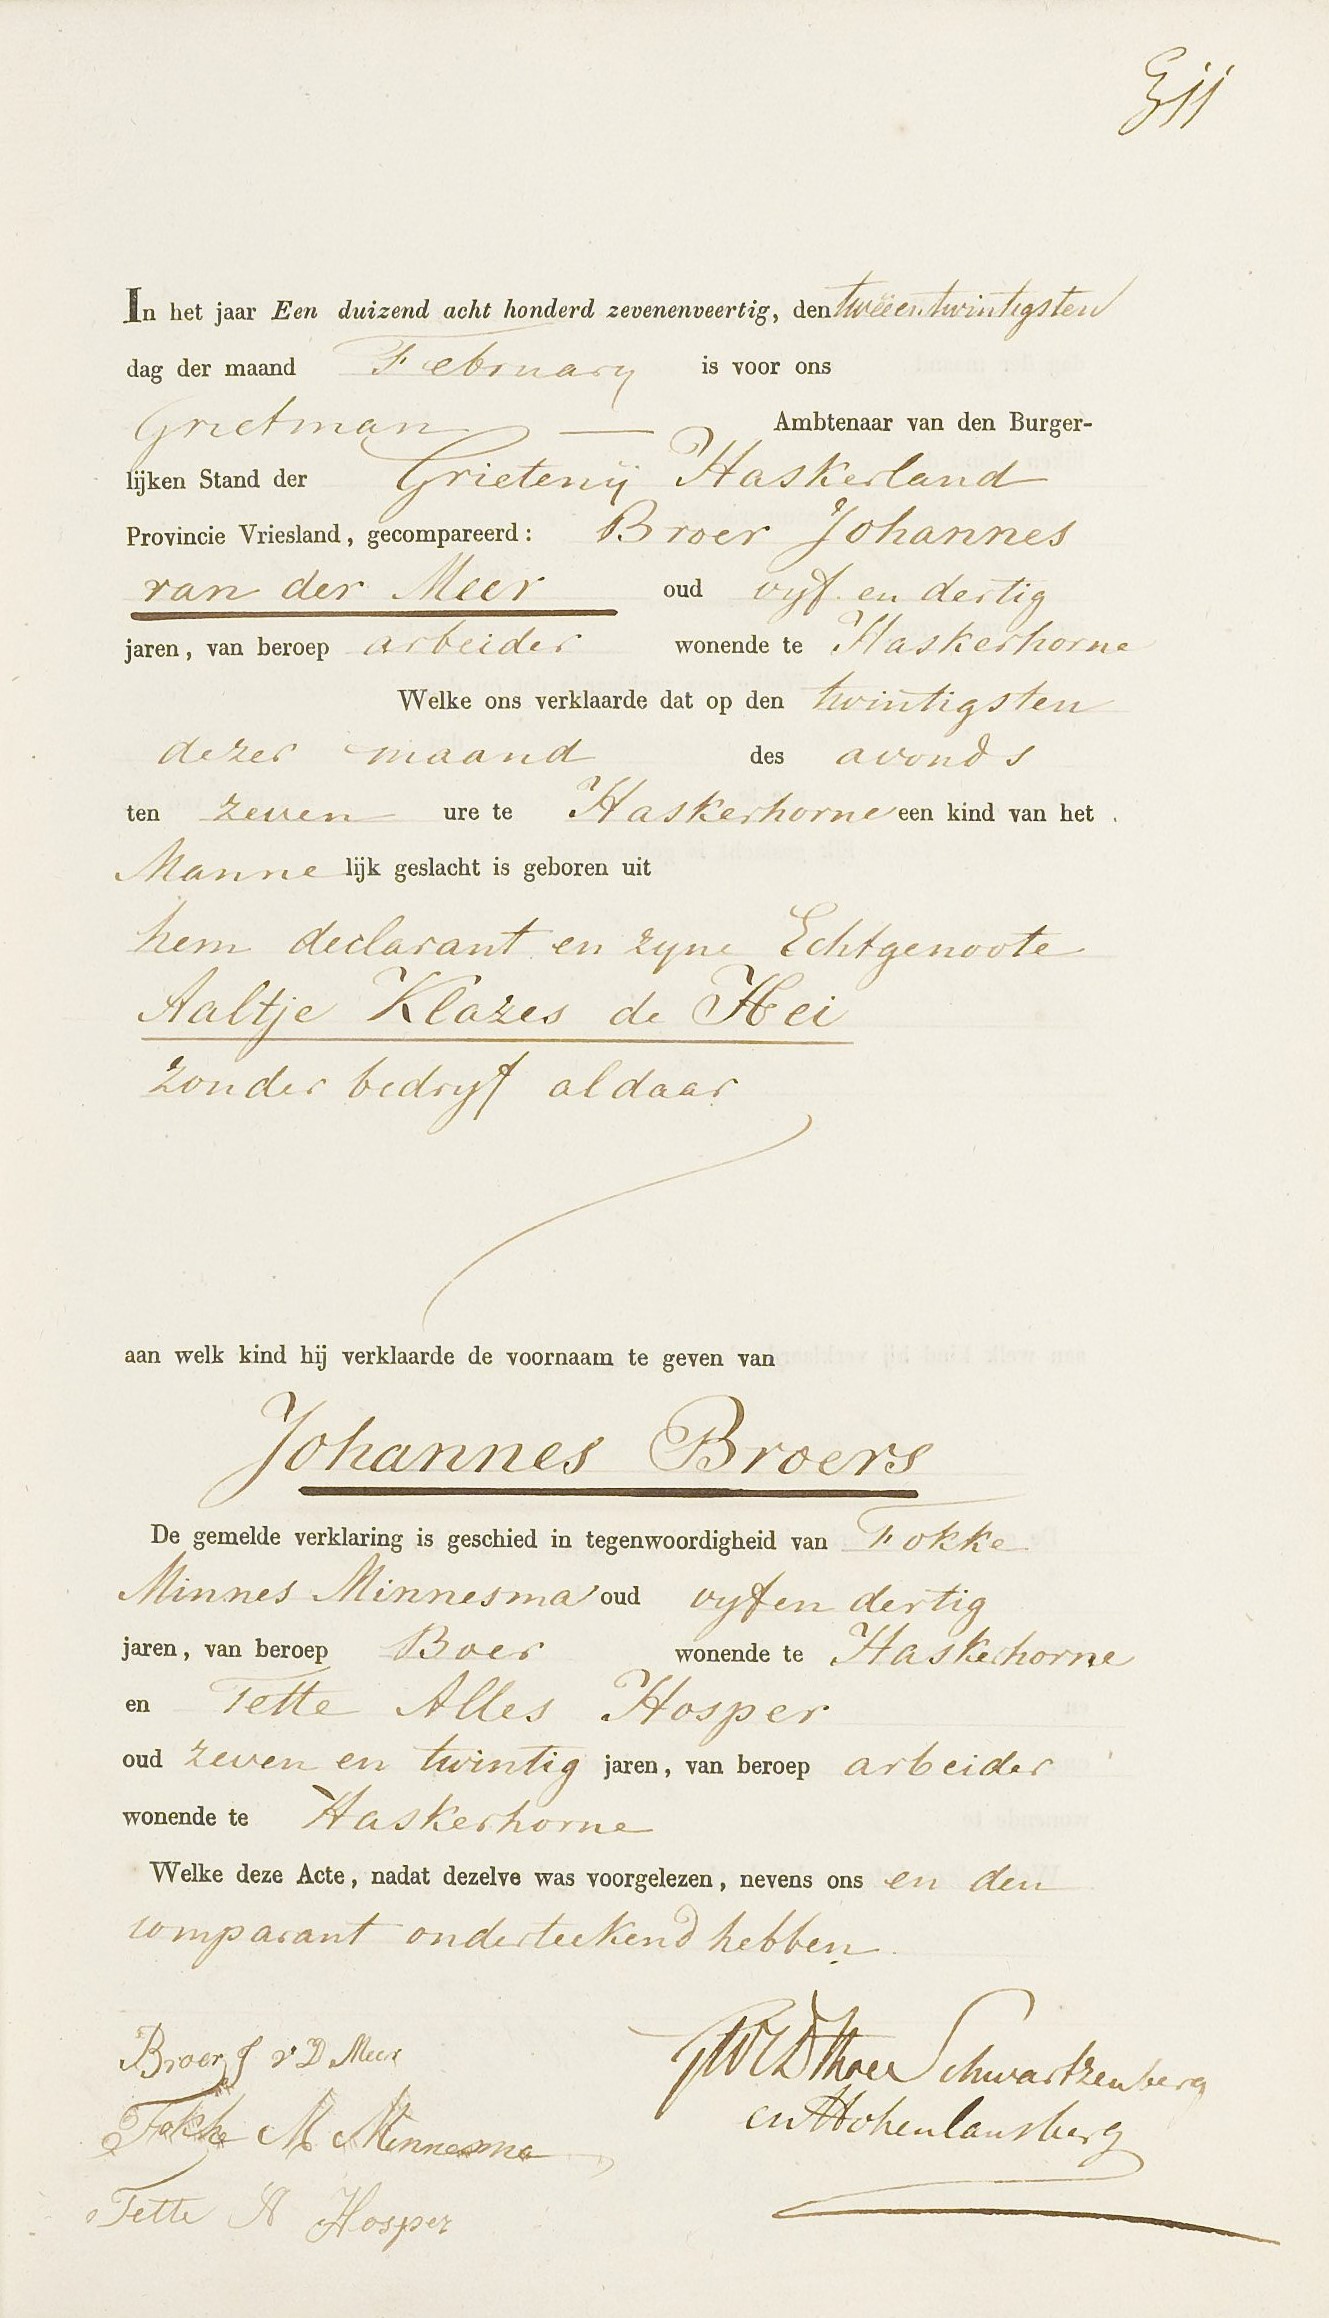 In het jaar Een duizend acht honderd zevenenveertig, den tweeentwintigsten
dag der maand February is voor ons
Grietman — Ambtenaar van den Burger-
lijken Stand der Grietenij Haskerland
Provincie Vriesland, gecompareerd: Broer Johannes
van der Meer oud vyf en dertig
jaren, van beroep arbeider wonende te Haskerhorne
Welke ons verklaarde dat op den twintigsten
dezer maand des avonds
ten zeven ure te Haskerhorne een kind van het
Manne lijk geslacht is geboren uit
hem declarant en zyne Echtgenoote
Aaltje Klazes de Hei
zonder bedryf aldaar
aan welk kind hij verklaarde de voornaam te geven van
Johannes Broers
De gemelde verklaring is geschied in tegenwoordigheid van Fokke
Minnes Minnesma oud vyf en dertig
jaren, van beroep Boer wonende te Haskerhorne
en Tette Alles Hosper
oud zeven en twintig jaren, van beroep arbeider
wonende te Haskerhorne
Welke deze Acte, nadat dezelve was voorgelezen, nevens ons en den
comparant onderteekend hebben.
Broer J v D Meer
Fokke M Minnesma
Tette A Hosper
thoe Schwartzenberg
en Hohenlansberg